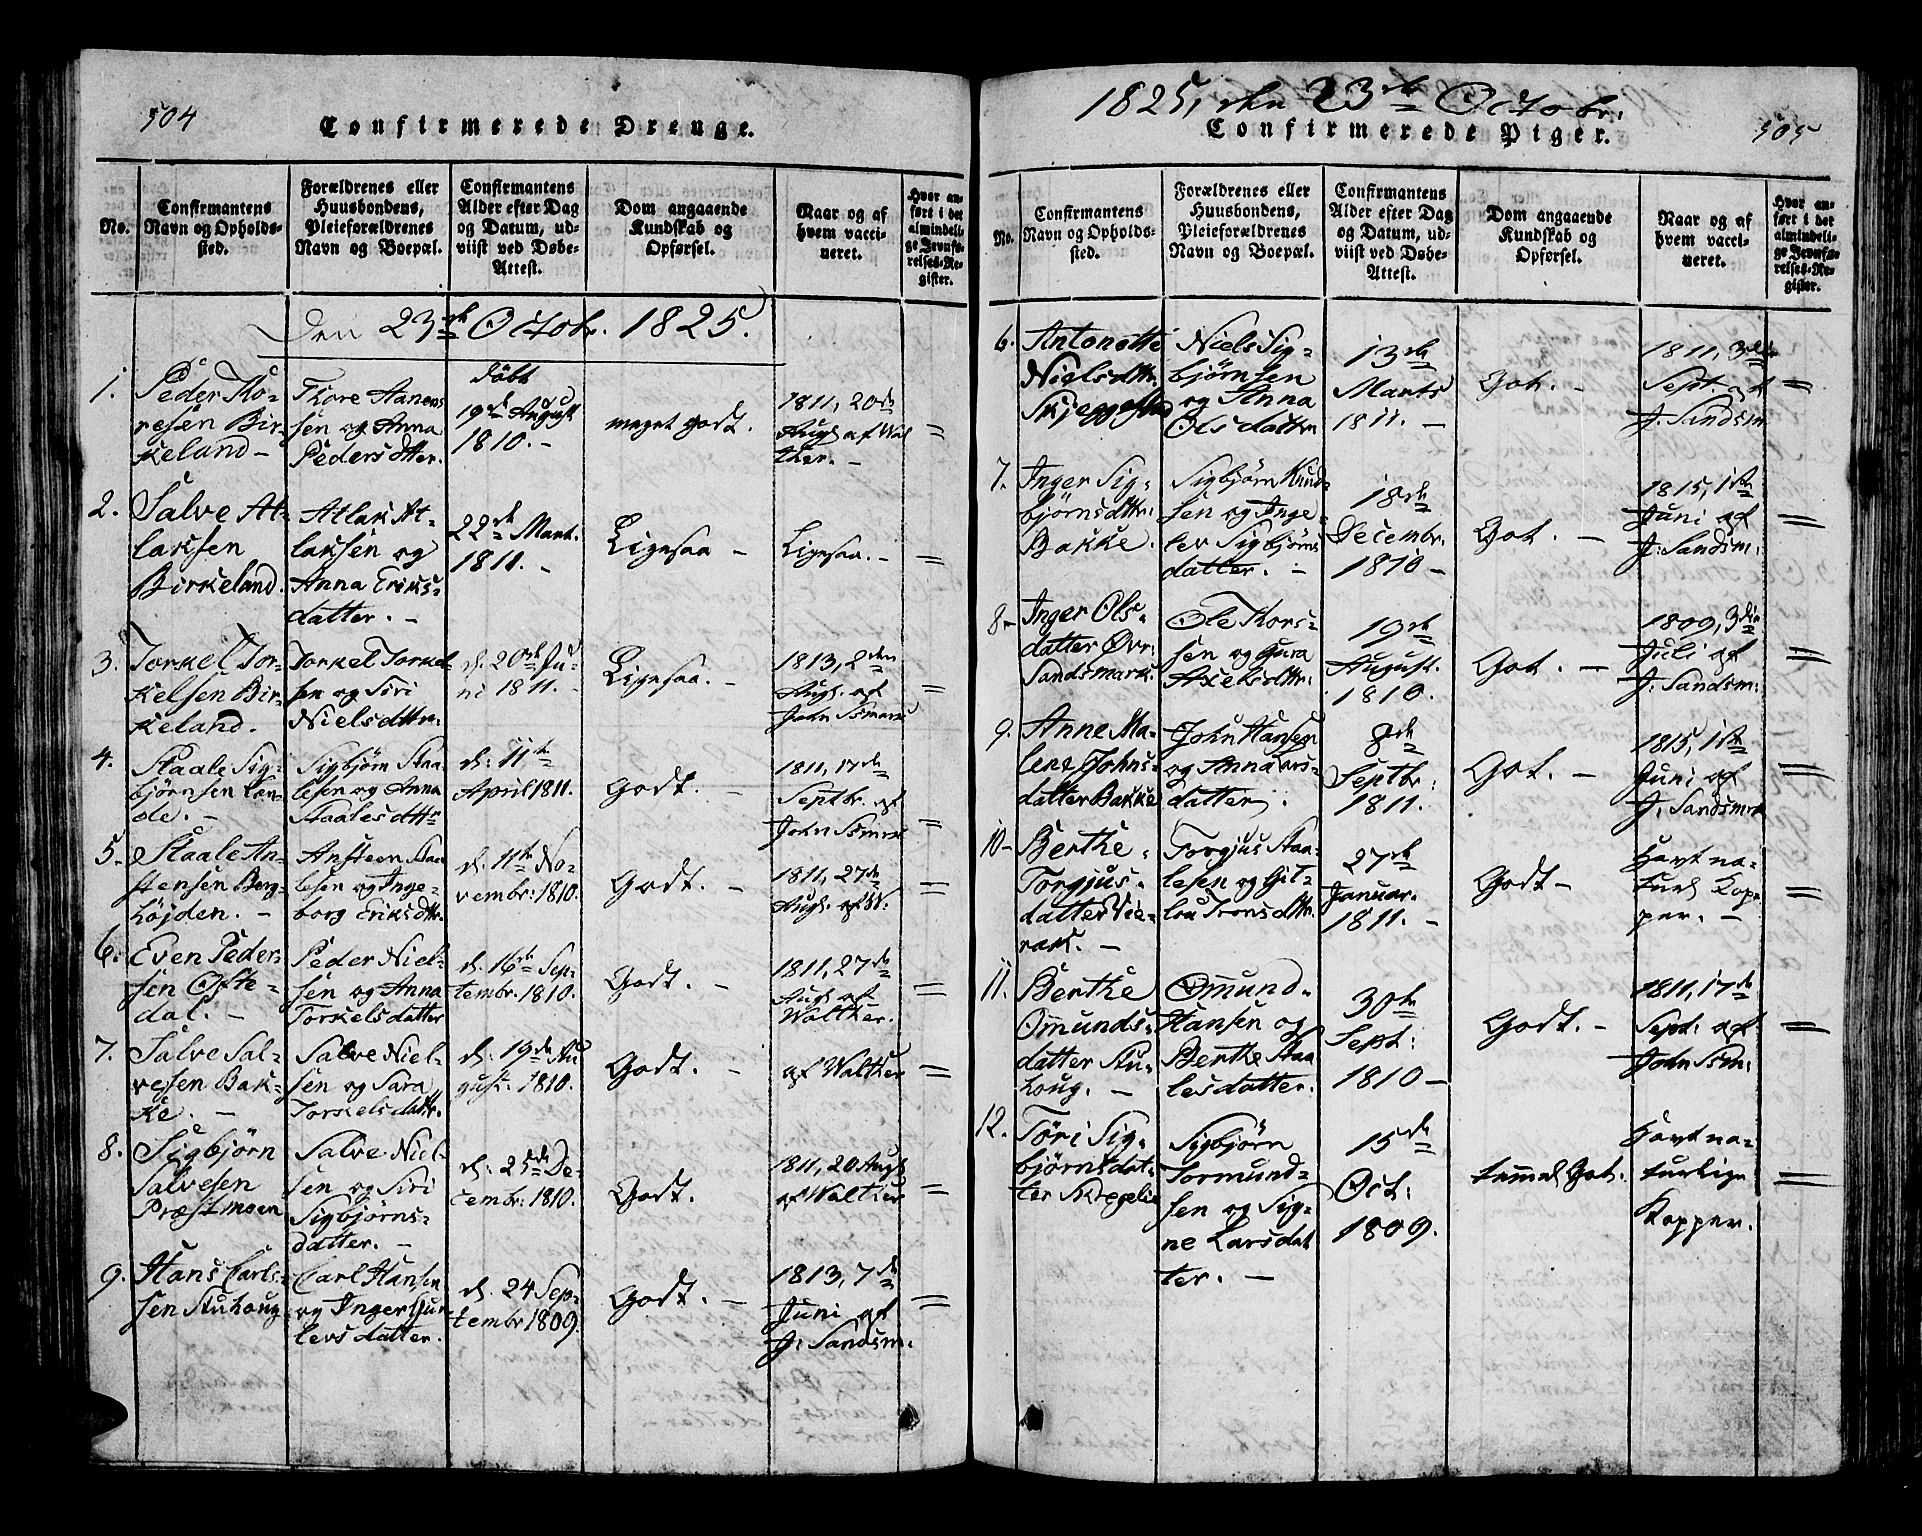 504
Confirmerede Drenge.
No.
Confirmantens
Navn og Opholds-
sted.
Forældrenes eller
Huusbondens,
Pleieforældrenes
Navn og Boepæl.
Confirmantens
Alder efter Dag
og Datum, ud-
viist ved Døbe-
Attest.
Dom angaaende
Kundskab og
Opførsel.
Naar og af
hvem vacci-
neret.
Hvor an-
ført i det
almindeli-
ge Jevnfø-
relses-Re-
gister.
Den 23de Octobr. 1825.
1.
Peder Tho-
resen Bir-
keland –
Thore Aanen
sen og Anna
Pedersdtter.
döbt
19de August
1810. –
meget godt.
1811, 20de
Augs. af Wal
ther. –
=
2.
Salve At-
laksen
Birkeland.
Atlak At-
laksen og
Anna Eriks-
datter. –
22de Mart.
1811. –
Ligesaa –
Ligesaa. –
=
3.
Torkel Tor-
kelsen Bir-
keland.
Torkel Torkel-
sen og Siri
Nielsdttr.
d. 20de Ju-
ni 1811. –
Ligesaa. –
1813, 2den
Augs. af
John Ssmark
=
4.
Staale Sig-
björnsen Lan-
de. –
Sigbjörn Staa-
lesen og Anna
Staalesdttr
d: 11te
April 1811.
Godt. –
1811, 17de
Septbr. af
John Ssmark
=
5.
Staale An-
stensen Berg-
höjden. –
Ansteen Staa
lesen og Inge-
borg Eriksdttr.
d. 11te No-
vembr. 1810.
Godt. –
1811, 27de
Augs. af W.
=
6.
Even Peder-
sen Ofte-
dal. –
Peder Niel-
sen og Anna
Torkelsdatter
d. 16te Sep-
tembr. 1810.
Godt. –
1811, 27de
Augs. af
Walther.
=
7.
Salve Sal-
vesen Bak-
ke. –
Salve Niel-
sen og Sara
Torkelsdattr.
d. 19de Au
gust: 1810.
Godt. –
af Walther
=
8.
Sigbjörn
Salvesen
Præstmoen
Salve Niel-
sen og Siri
Sigbjörns-
datter. –
d: 25de De-
cembr. 1810.
Godt.
1811, 20 Augs
af Walther
=
9.
Hans Carls-
sen Stuhoug
Carl Hansen
og Inger Gur-
levsdatter.
d. 24 Sep-
tembr 1809.
Godt. –
1813, 7de
Juni af
J: Sandsm.
=
1825, den 23de Octobr.
Confirmerede Piger.
505
No.
Confirmantens
Navn og Opholds-
sted.
Forældrenes eller
Huusbondens,
Pleieforældrenes
Navn og Boepæl.
Confirmantens
Alder efter Dag
og Datum, ud-
viist ved Døbe-
Attest.
Dom angaaende
Kundskab og
Opførsel.
Naar og af
hvem vacci-
neret.
Hvor an-
ført i det
almindeli-
ge Jevnfø-
relses-Re-
gister.
6.
Antonette
Nielsdttr.
Skjeggestad
Niels Sig-
björnsen
og Anna
Olsdatter
13de
Marts
1811. –
Got. –
1811, 3die
Sept. af
J. Sandsm
=
7.
Inger Sig-
björnsdttr.
Bakke.
Sigbjørn Knud-
sen og Inge-
lev Sigbjörns
datter. –
18de
Decembr.
1810 –
Got. –
1815, 1ste
Juni af
J: Sandsm.
=
8.
Inger Ols-
datter Øvr.
Sandsmark.
Ole Thors-
sen og Gura
Axelsdttr.
19de
August.
1810.
Got. –
1809, 3die
Juli af
J: Sandsm:
=
9.
Anne Ma-
lene Johns-
datter Bakke
John Hansen
og Anna Lars-
datter.
8de
Septbr:
1811.
Got. –
1815, 1ste
Juni af
J. Sandsmrk
=
10
Berthe
Torgjus-
datter Vie-
rak. –
Torgjus Staa-
lesen og Git-
lou Tronsdttr.
27de
Januar.
1811. –
Godt –
Havt na-
turl. Kop-
per. –
=
11.
Berthe
Omunds-
datter Stu-
houg. –
Omund
Hansen og
Berthe Staa
lesdatter.
30te
Sept:
1810 –
Godt. –
1811, 17de
Sept: af
John Ssm:
=
12.
Töri Sig-
björnsdat-
ter
Sigbjörn
Tormund-
sen og Sig-
ne Larsdat
ter. –
15de
Oct:
1809.
temmel. Got.
Havt na-
turlige
Kopper.
=